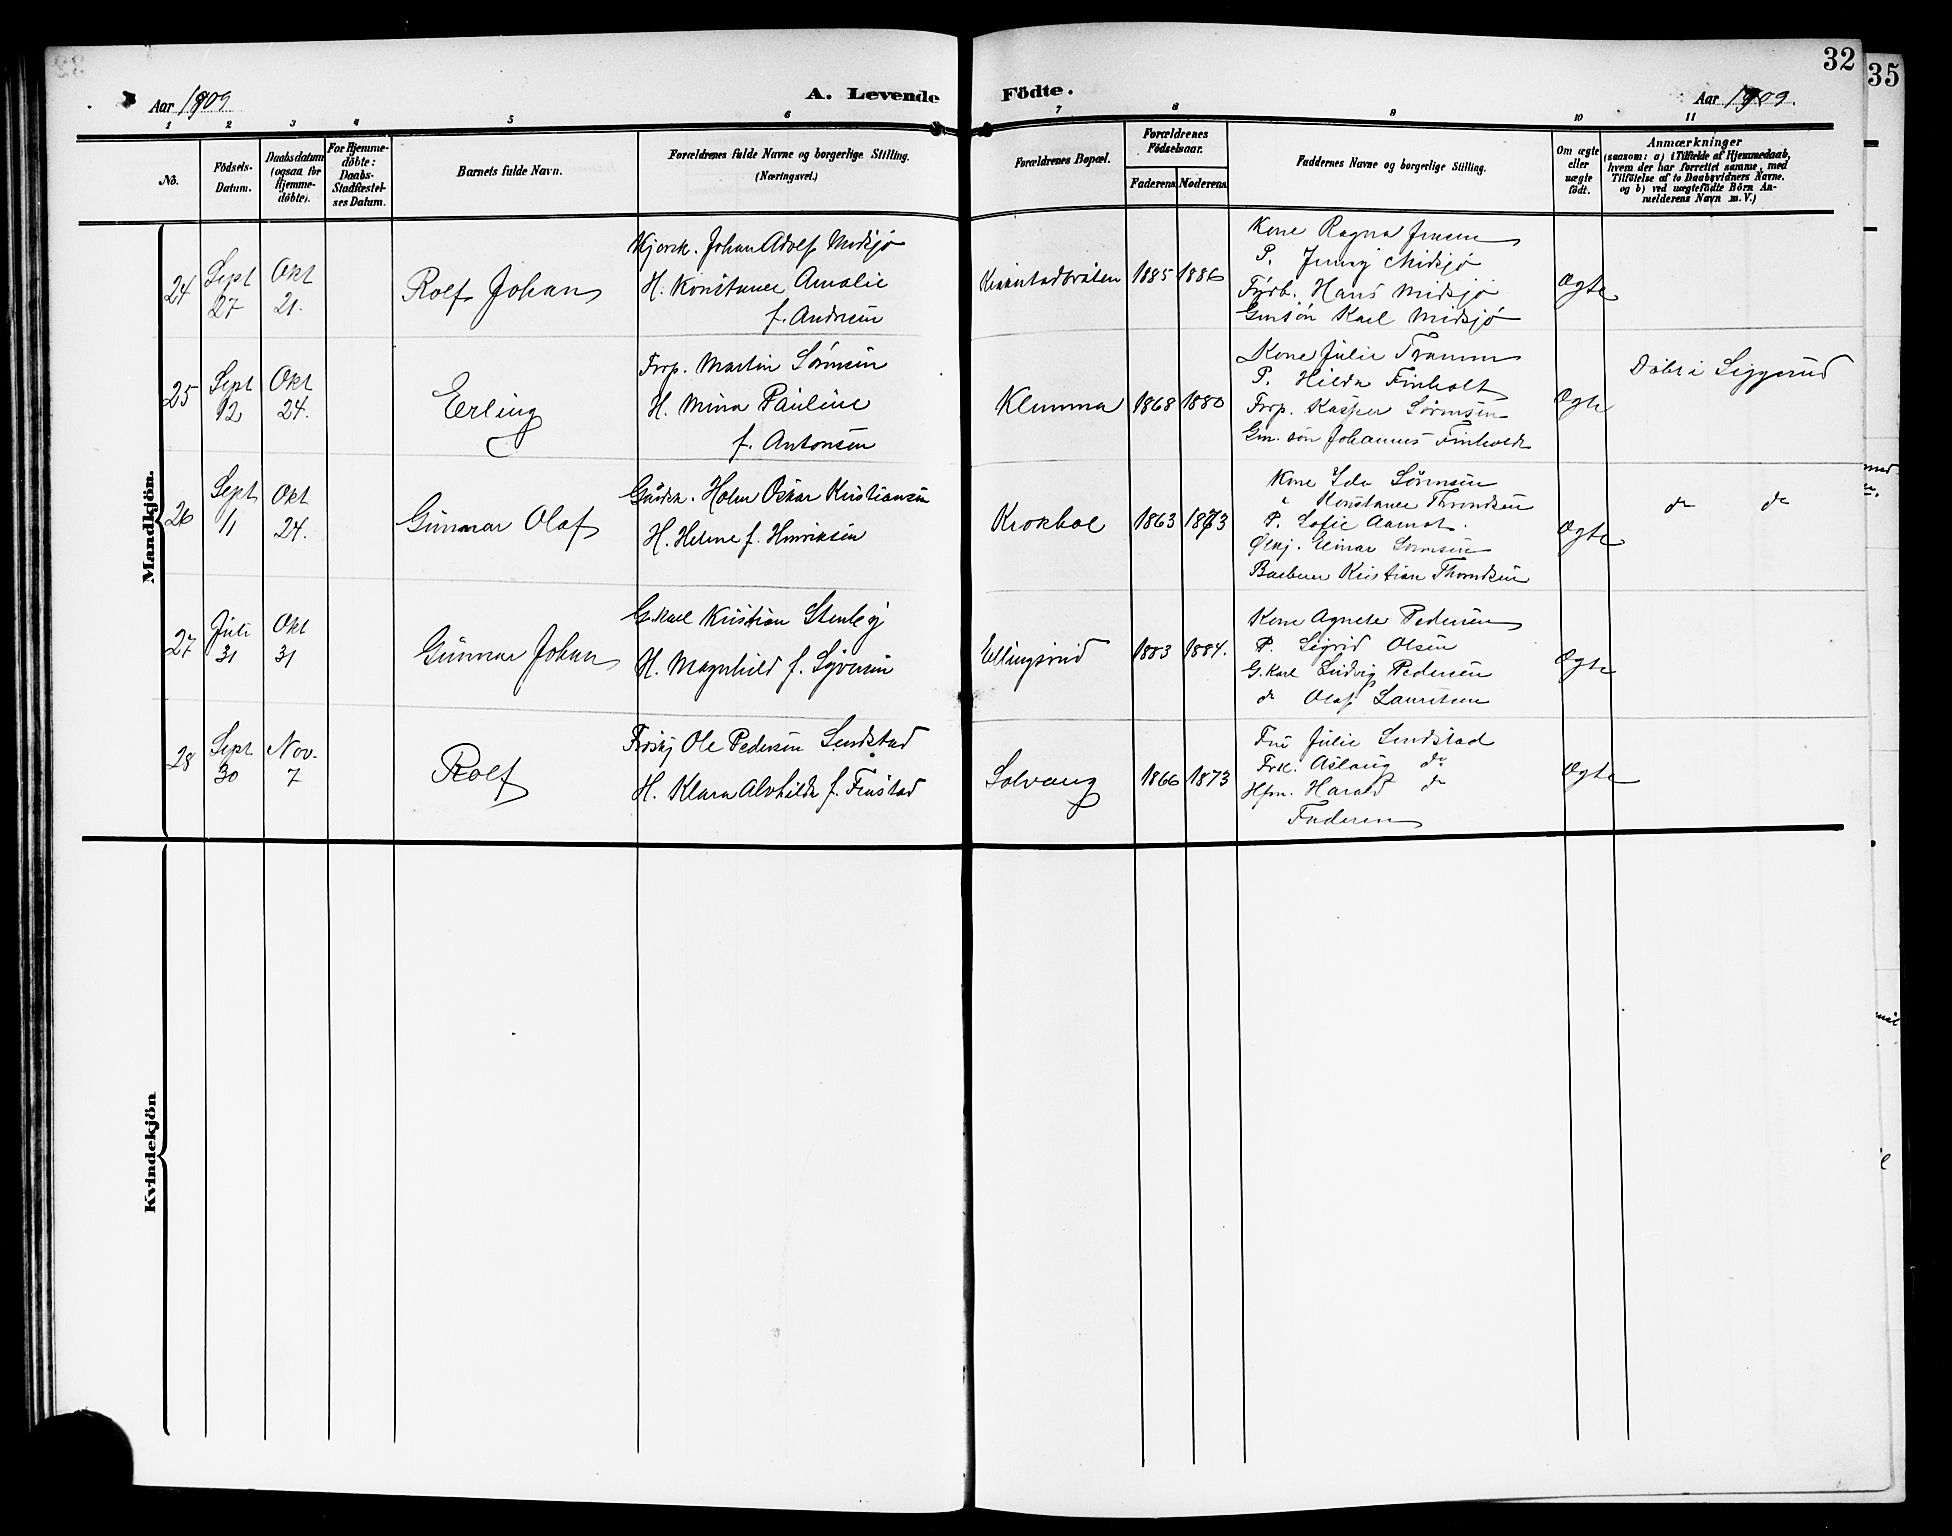 32
35
Aar 1909
A. Levende Födte.
Aar 1909.
1 2 3 4 5 6 7 8 9 10 11
No.
Födsels-Datum.
Daabsdatum (ogsaa for Hjemme-döbte).
For Hjemme-döbte: Daabs-Stadfæstel-ses Datum.
Barnets fulde Navn.
Forældrenes fulde Navne og borgerlige Stilling.
(Næringsvei.)
Forældrenes Bopæl.
Forældrenes Födselsaar.
Faderens Moderens
Faddernes Navne og borgerlige Stilling.
Om ægte eller uægte födt.
Anmærkninger
(saasom: a) i Tilfælde af Hjemmedaab,
hvem der har forrettet samme, med
Tilföielse af to Daabsvidners Navne.
og b) ved uægtefödte Börn An-
melderens Navn m. V.)
Mandkjön.
24
Sept 27
Okt 21.
Rolf Johan
Johan Adolf Midsjø
H. Konstance Amalie
f. Andrésen
1885 1886
Kone Ragna Jensen
P. Jenny Midsjø
Hans Midsjø
Gmsøn Karl Midsjø
Ægte
25
Sept 12
Okt 24.
Erling
Frp. Martin Sørensen
H. Mina Pauline
f. Antonsen
Klemma
1868 1880
Kone Julie
P. Hilda Finholt
Frp. Kasper Sørensen
Gm. søn Johannes Finholdt
Ægte
Døbt i Siggerud
26
Sept 11
Okt 24.
Gunnar Olaf
Holm Oskar Kristiansen
H. Helene f. Henriksen
Krokhol
1863 1873
Kone Ida Sørensen
" Konstance Throndsen
P. Sofie Aamot.
Einar Sørensen
Kristian Throndsen
Ægte
do do
27
Juli 31
Okt 31
Gunnar Johan
G.karl Kristian Stenby
H. Magnhild f. Syversen
Ellingsrud
1883 1884.
Kone Agnete Pedersen
P. Sigrid Olsen
G.karl Ludvig Pedersen
do Olaf Lauritsen
Ægte
28
Sept 30
Nov. 7
Rolf
Ole Pedersen Sendstad
H. Klara Alvhilda f. Finstad
Solvang
1866 1873
Fru Julie Sendstad
Frk. Aslaug do
Harald do
Faderen
Ægte
Kvindekjön